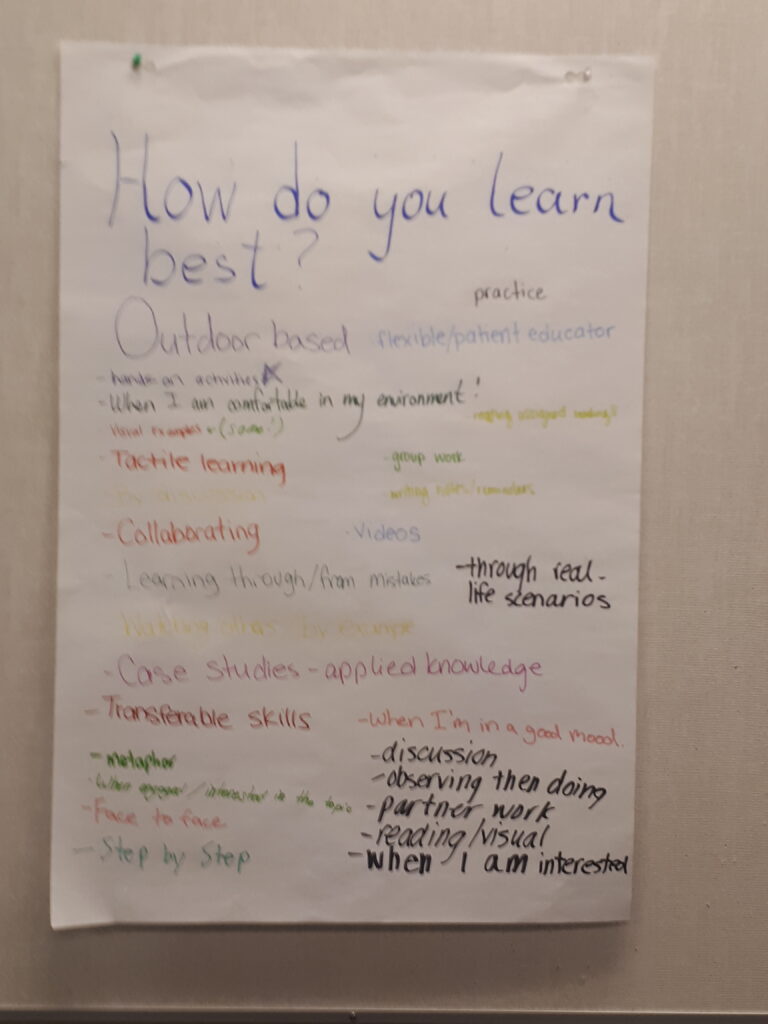 How do you learn
best?
practice
Outdoor based
flexible/patient educator
- hands-on activities
- When I am comfortable in my environment!
visual examples + (same!)
- Tactile learning
- group work
writing notes/reminders
- Collaborating
- Videos
- Learning through/from mistakes
- through real-
life scenarios
Watching others by example
- Case studies - applied knowledge
- Transferable skills
- when I'm in a good mood.
- metaphor
- discussion
- observing then doing
- When engaged / interested in the topic
- partner work
- Face to face
- reading/visual
- Step by Step
- when I am interested